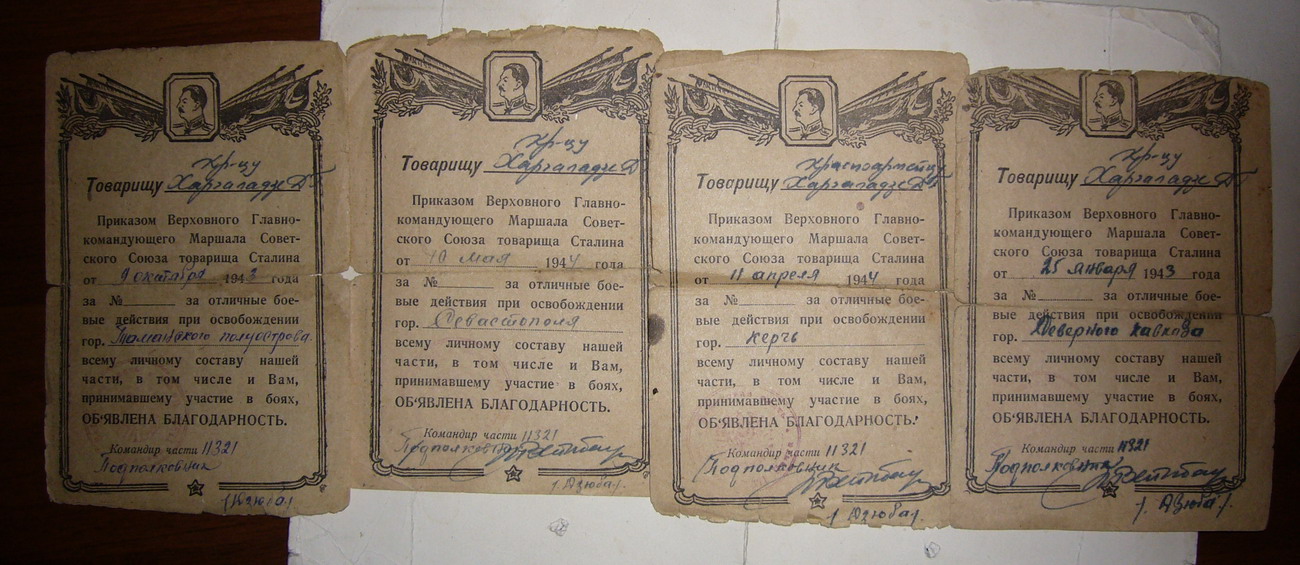 Кр-цу
Товарищу Харгаладзе
Приказом Верховного Главно-
командующего Маршала Совет-
ского Союза товарища Сталина
от 9 октября 1943 года
за № за отличные бое-
вые действия при освобождении
гор. Таманского полуострова
всему личному составу нашей
части, в том числе и Вам,
принимавшему участие в боях,
ОБ'ЯВЛЕНА БЛАГОДАРНОСТЬ.
Командир части 11321
Подполковник
/Дзюба/
Кр-цу
Товарищу Харгаладзе
Приказом Верховного Главно-
командующего Маршала Совет-
ского Союза товарища Сталина
от 10 мая 1944 года
за № за отличные бое-
вые действия при освобождении
гор. Севастополя
всему личному составу нашей
части, в том числе и Вам,
принимавшему участие в боях,
ОБ'ЯВЛЕНА БЛАГОДАРНОСТЬ.
Командир части 11321
Подполковник
/Дзюба/
Красноармейцу
Товарищу Харгаладзе
Приказом Верховного Главно-
командующего Маршала Совет-
ского Союза товарища Сталина
от 11 апреля 1944 года
за № за отличные бое-
вые действия при освобождении
гор. Керчь
всему личному составу нашей
части, в том числе и Вам,
принимавшему участие в боях,
ОБ'ЯВЛЕНА БЛАГОДАРНОСТЬ.
Командир части 11321
Подполковник
/Дзюба/
Кр-цу
Товарищу Харгаладзе
Приказом Верховного Главно-
командующего Маршала Совет-
ского Союза товарища Сталина
от 25 января 1943 года
за № за отличные бое-
вые действия при освобождении
гор. Северного Кавказа
всему личному составу нашей
части, в том числе и Вам,
принимавшему участие в боях,
ОБ'ЯВЛЕНА БЛАГОДАРНОСТЬ.
Командир части 11321
Подполковник
/Дзюба/